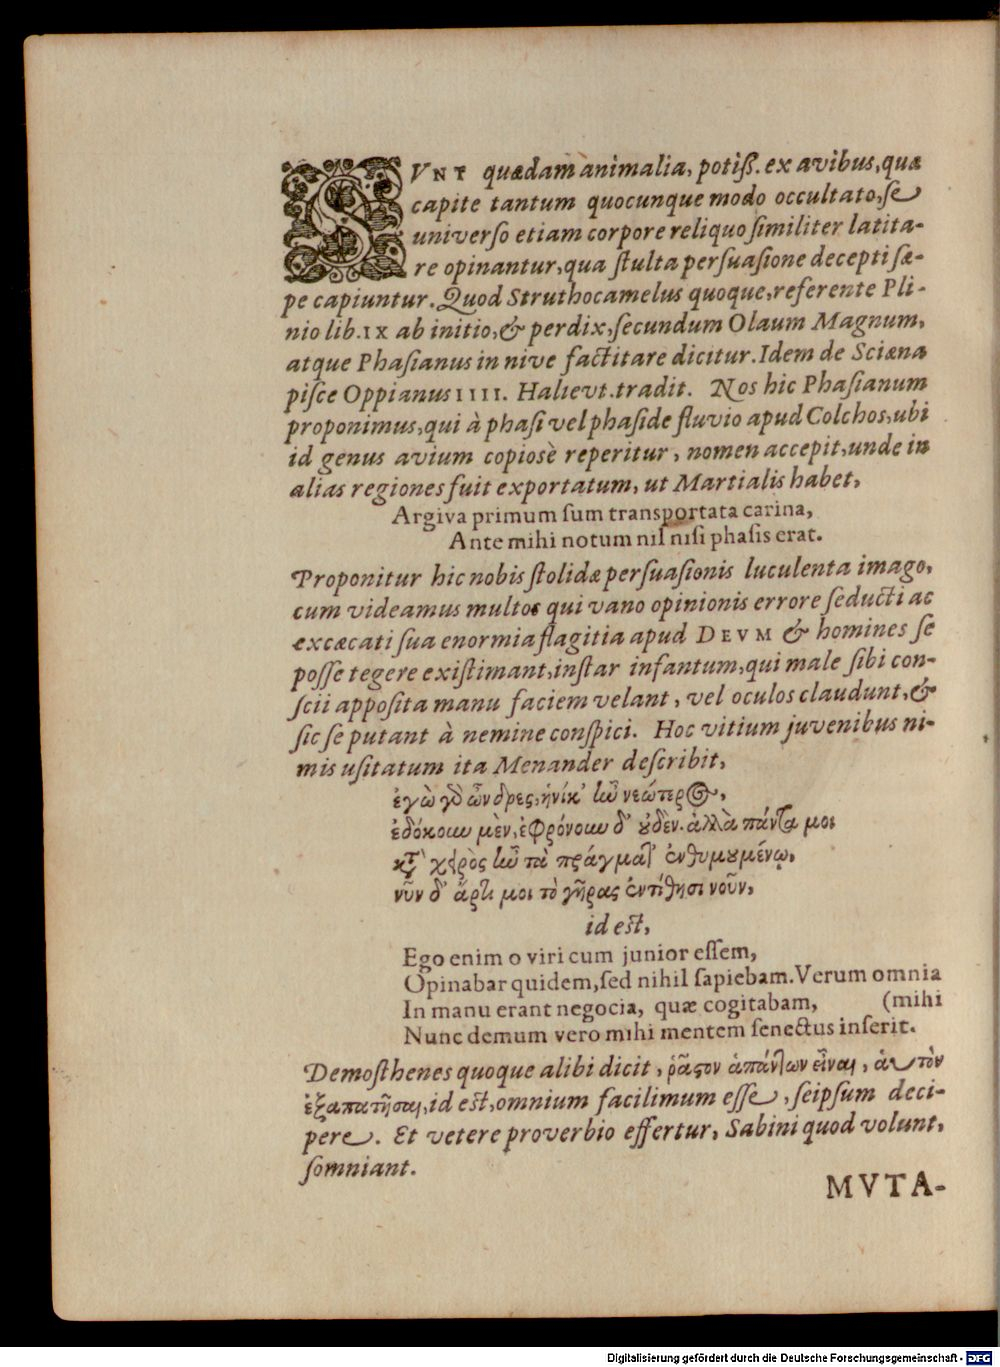 SVNT quædam animalia, potiſſ. ex avibus, quæ
capite tantum quocunque modo occultato, ſe
univerſo etiam corpore reliquo ſimiliter latita-
re opinantur, qua ſtulta perſuaſione decepti ſæ-
pe capiuntur. Quod Struthocamelus quoque, referente Pli-
nio lib. IX ab initio, & perdix, ſecundum Olaum Magnum,
atque Phaſianus in nive factitare dicitur. Idem de Sciæna
piſce Oppianus IIII. Halieut. tradit. Nos hic Phaſianum
proponimus, qui à phaſi vel phaſide fluvio apud Colchos, ubi
id genus avium copiosè reperitur, nomen accepit, unde in
alias regiones fuit exportatum, ut Martialis habet,
Argiva primum ſum transportata carina,
Ante mihi notum nil niſi phaſis erat.
Proponitur hic nobis ſtolidæ perſuaſionis luculenta imago,
cum videamus multos qui vano opinionis errore ſeducti ac
excæcati ſua enormia flagitia apud DEVM & homines ſe
poſſe tegere exiſtimant, inſtar infantum, qui male ſibi con-
ſcii appoſita manu faciem velant, vel oculos claudunt, &
ſic ſe putant à nemine conſpici. Hoc vitium juvenibus ni-
mis uſitatum ita Menander deſcribit,
ἐγὼ γὸ ὦνδρες, ἡνίκ' ἰῶ νεώτερος,
ἐδόκουν μὲν, ἐφρόνουν δ' οὐδὲν. ἀλλὰ πάντα μοι
κτ χερὸς ἰῶ τὰ πράγματ' ἐνθυμουμένῳ,
νῦν δ' ἄρτι μοι τὸ γῆρας ἐντίθησι νοῦν,
id eſt,
Ego enim o viri cum junior eſſem,
Opinabar quidem, ſed nihil ſapiebam. Verum omnia
In manu erant negocia, quæ cogitabam, (mihi
Nunc demum vero mihi mentem ſenectus inſerit.
Demoſthenes quoque alibi dicit, ῥᾶστον ἁπάντων εἶναι, αὑτὸν
ἐξαπατῆσαι, id eſt, omnium facilimum eſſe, ſeipſum deci-
pere. Et vetere proverbio effertur, Sabini quod volunt,
ſomniant.
MVTA-
Digitalisierung gefördert durch die Deutsche Forschungsgemeinschaft - DFG